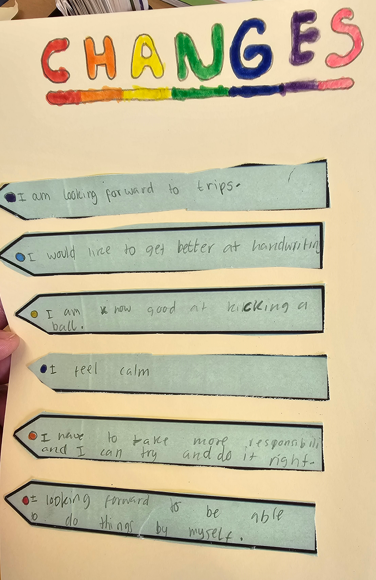 CHANGES
I am looking forward to trips.
I would like to get better at handwriting
I am know good at kicking a
ball.
I feel calm
I have to take more responsibili
and I can try and do it right.
I looking forward to be able
to do things by myself.